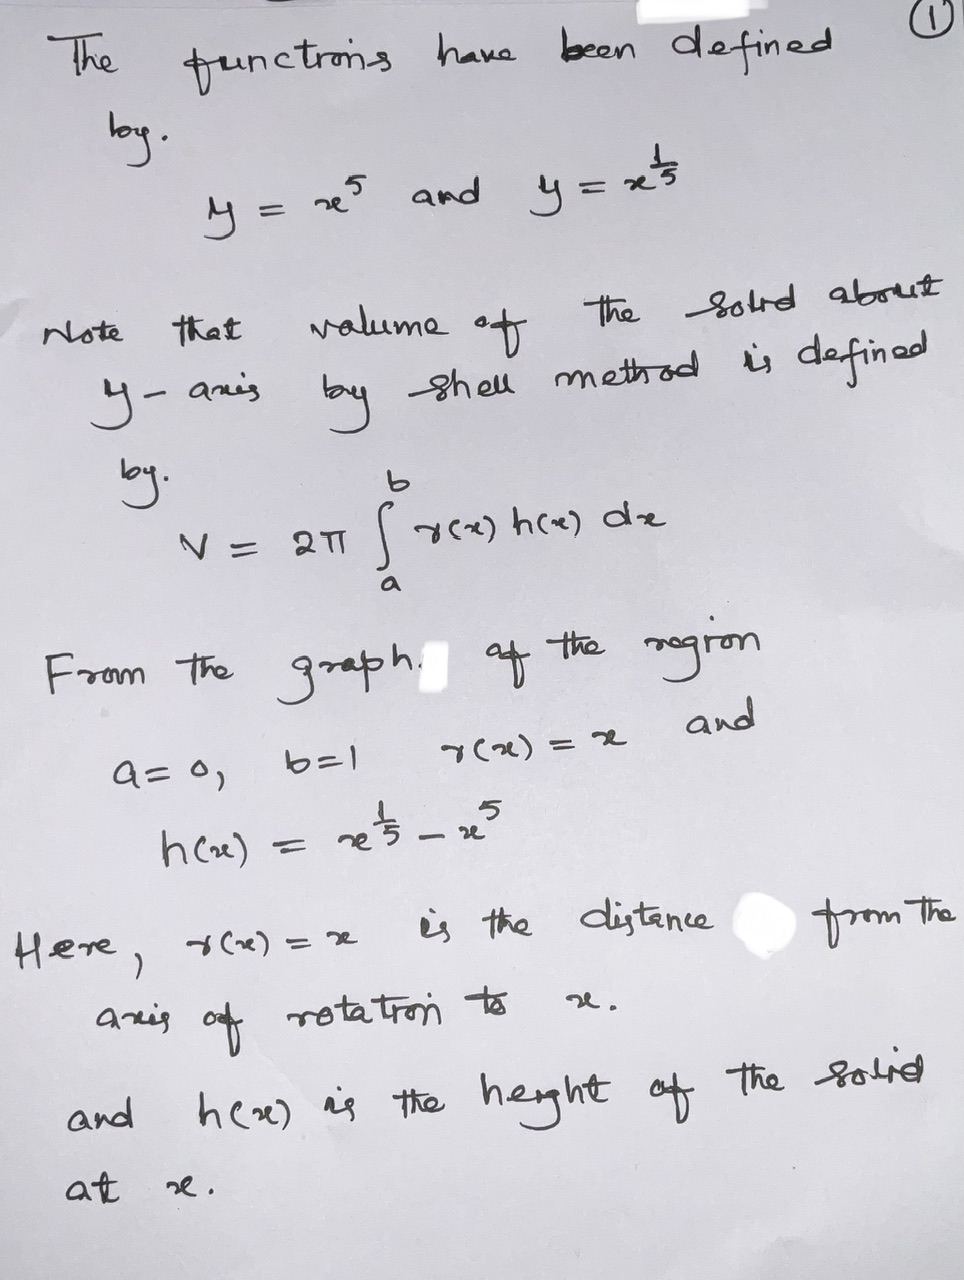 ①
The functions have been defined
by.
y = x^5 and y = x^{1/5}
Note that volume of the solid about
y-axis by shell method is defined
by.
V = 2π ∫_a^b r(x) h(x) dx
From the graph. of the region
a=0, b=1 r(x) = x and
h(x) = x^{1/5} - x^5
Here, r(x) = x is the distance from the
axis of rotation to x.
and h(x) is the height of the solid
at x.